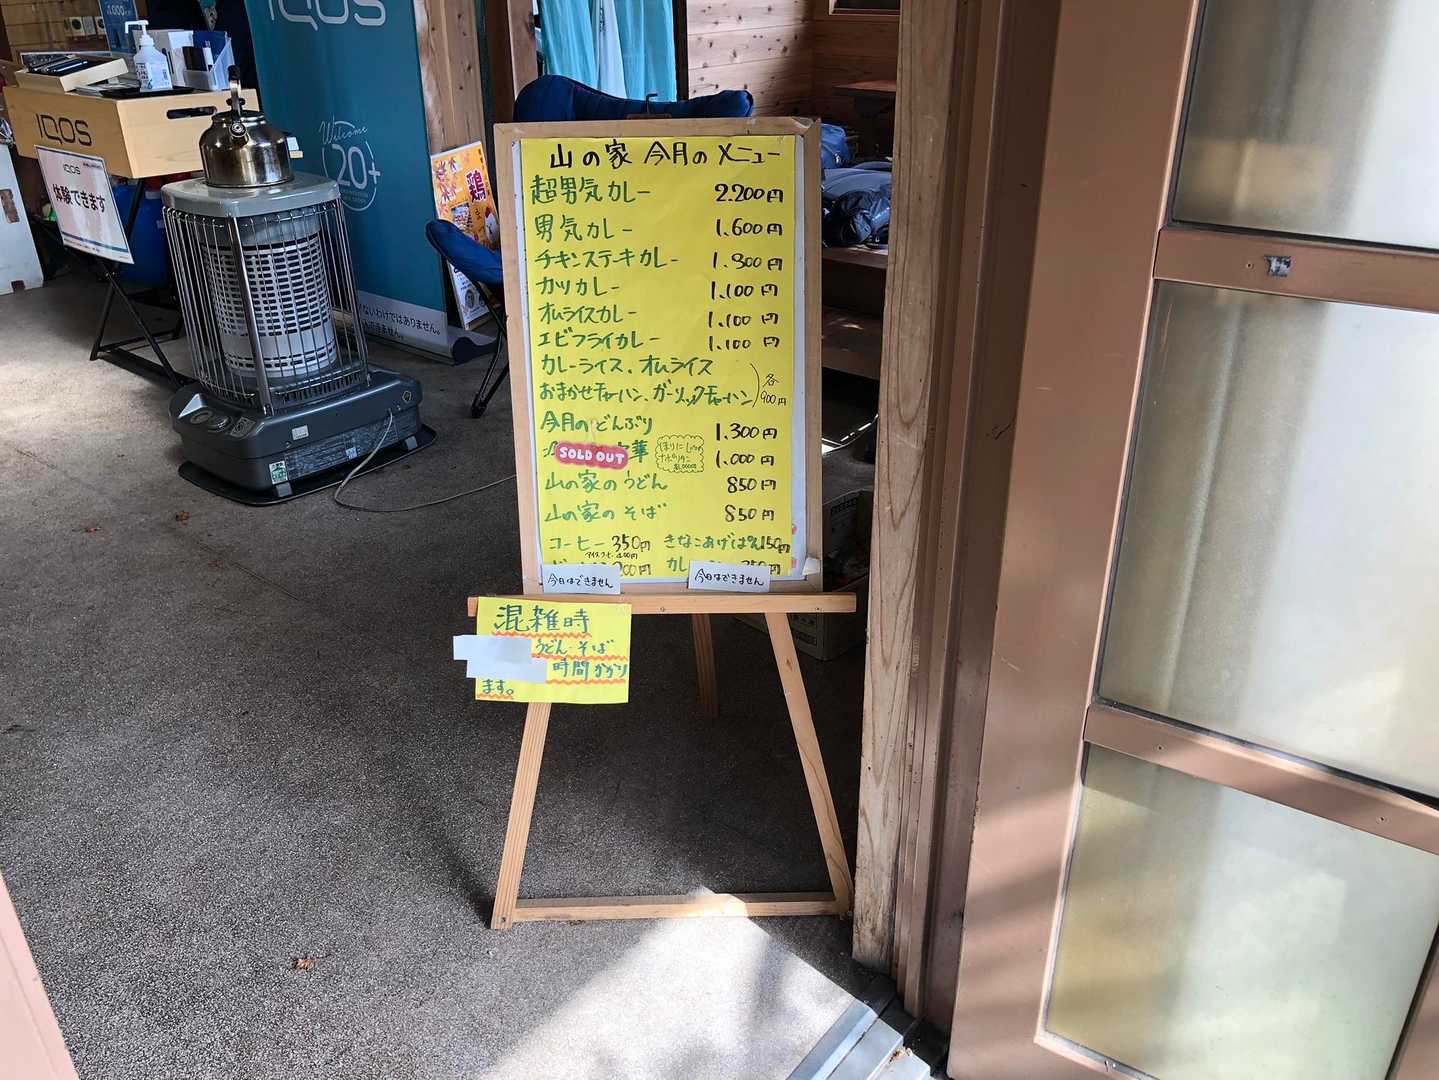 IQOS
IQOS
IQOS
体験できます
Welcome
20+
ないわけではありません。
きません。
鶏
山の家 今月のメニュー
超男気カレー 2.200円
男気カレー 1.600円
チキンステーキカレー 1.300円
カツカレー 1.100円
オムライスカレー 1.100円
エビフライカレー 1.100円
カレーライス、オムライス
おまかせチャーハン、ガーリックチャーハン 各900円
今月のどんぶり 1.300円
SOLD OUT 華 1.000円
山の家のうどん 850円
山の家のそば 850円
コーヒー 350円 きなこあげぱん150円
アイスコーヒー 400円
カレー
今日はできません 今日はできません
混雑時
うどん・そば
時間かかり
ます。